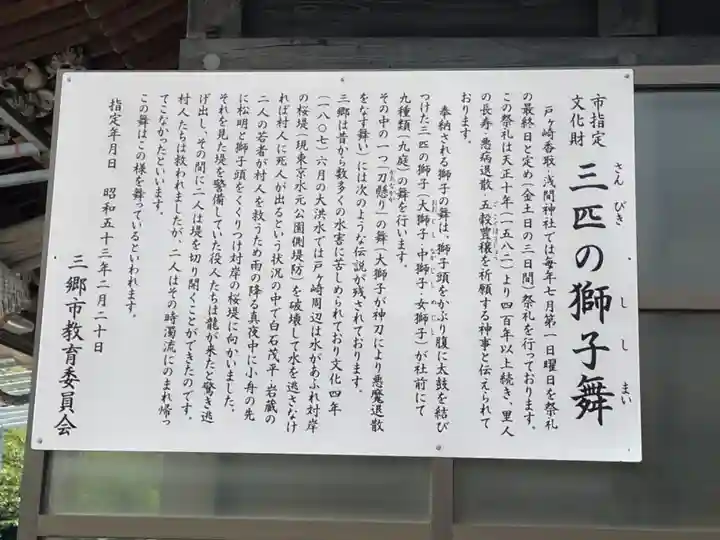 市指定
文化財
三匹の獅子舞
さんびきししまい
戸ヶ崎香取・浅間神社では毎年七月第一日曜日を祭礼
の最終日と定め(金土日の三日間)祭礼を行っております。
この祭礼は天正十年(一五八二)より四百年以上続き、里人
の長寿・悪病退散・五穀豊穣を祈願する神事と伝えられて
おります。
奉納される獅子の舞は、獅子頭をかぶり腹に太鼓を結び
つけた三匹の獅子(大獅子・中獅子・女獅子)が社前にて
九種類(九庭)の舞を行います。
その中の一つ「刀懸り」の舞(大獅子が神刀により悪魔退散
をなす舞い)には次のような伝説が残されております。
三郷は昔から数多くの水害に苦しめられており文化四年
(一八〇七)六月の大洪水では戸ヶ崎周辺は水があふれ対岸
の桜堤(現東京水元公園側堤防)を破壊して水を逃さなけ
れば村人に死人が出るという状況の中で白石茂平・岩蔵の
二人の若者が村人を救うため雨の降る真夜中に小舟の先
に松明と獅子頭をくくりつけ対岸の桜堤に向かいました。
それを見た堤を警備していた役人たちは龍が来たと驚き逃
げ出し、その間に二人は堤を切り開くことができたのです。
村人たちは救われましたが、二人はその時濁流にのまれ帰っ
てこなかったといいます。
この舞はこの様を舞っているといわれます。
指定年月日 昭和五十三年二月二十日
三郷市教育委員会